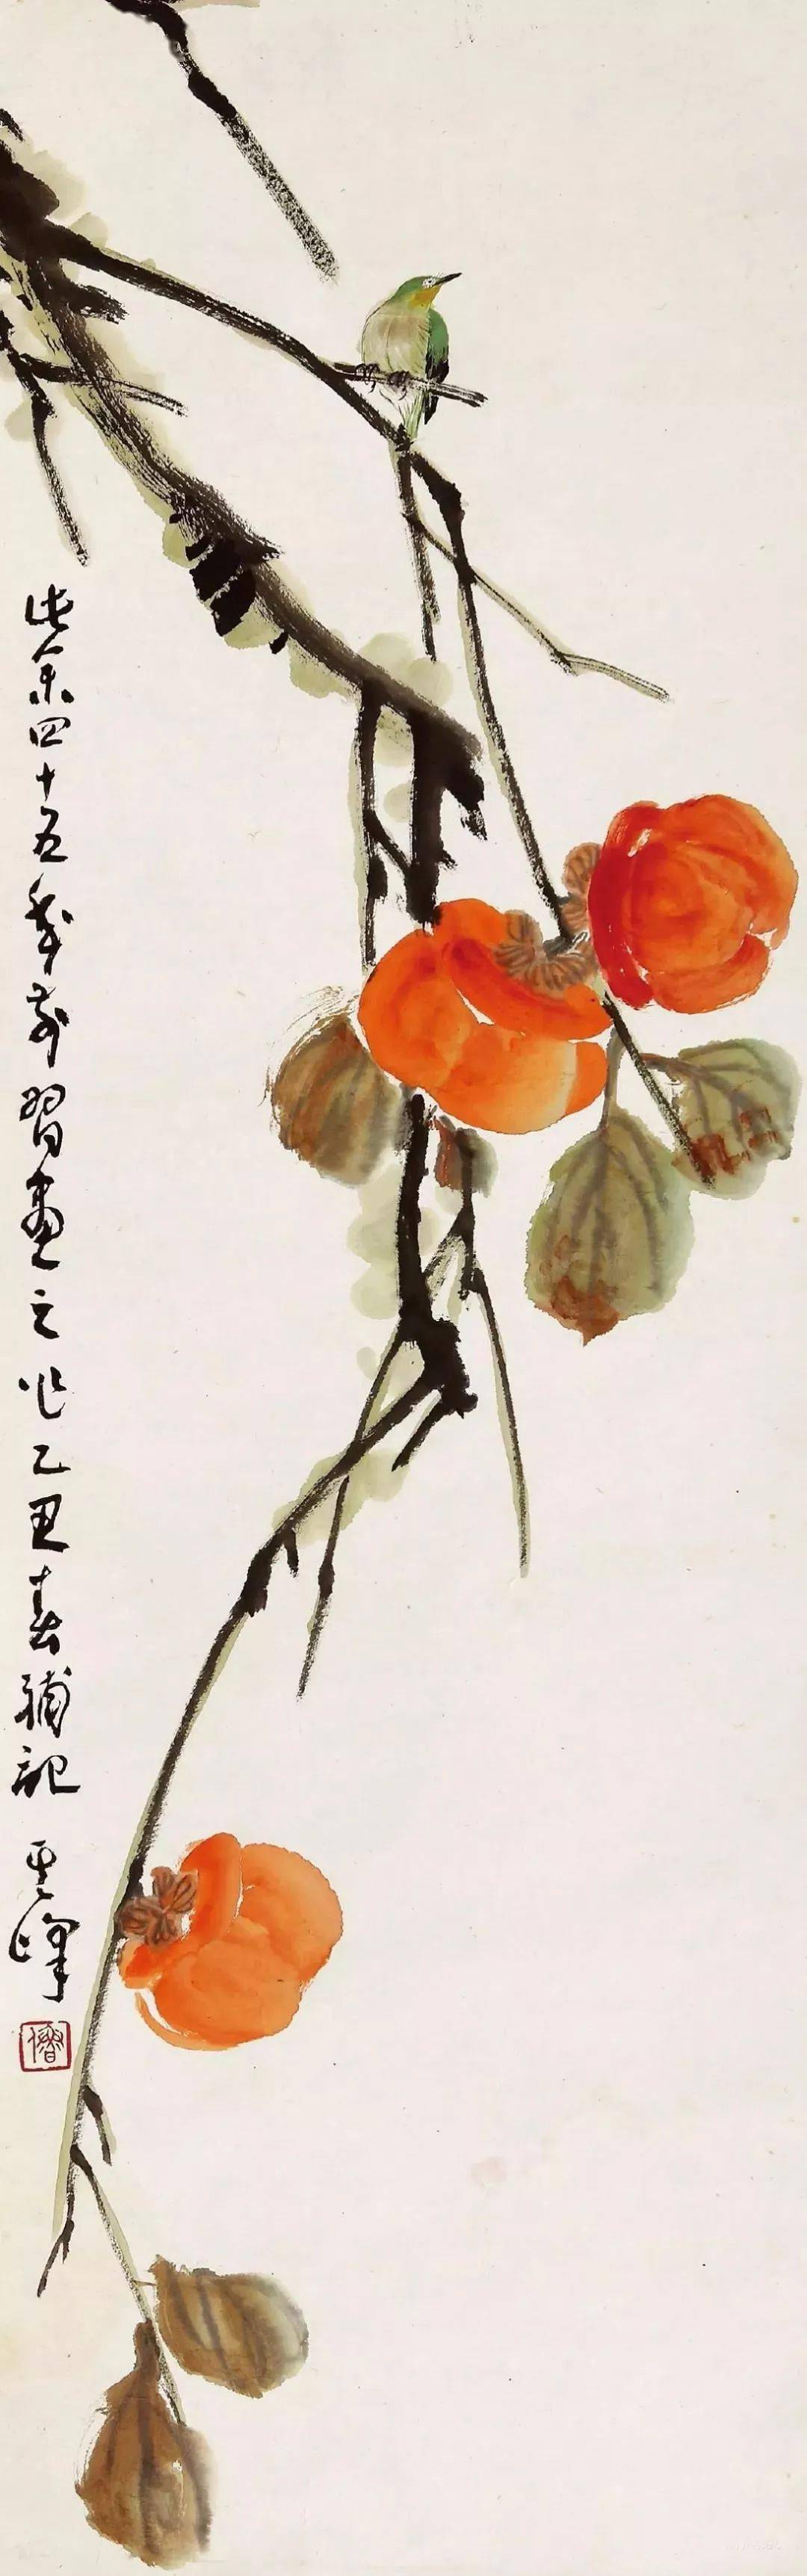 此余四十五年前習畫之作乙丑春補記 其峰